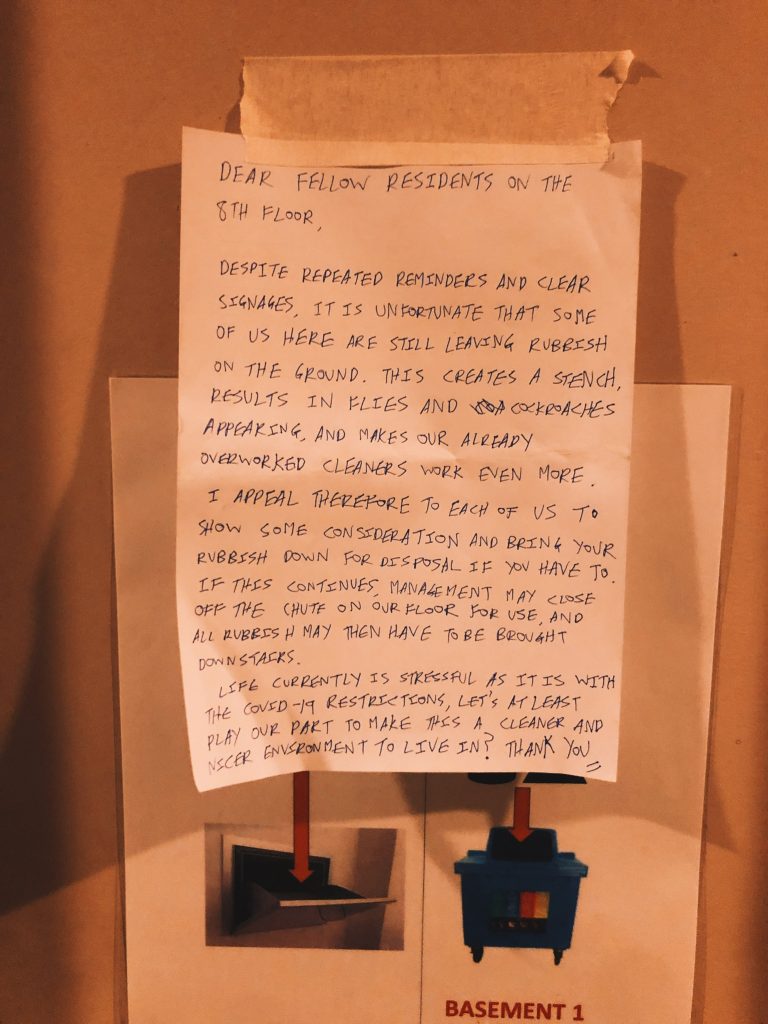 DEAR FELLOW RESIDENTS ON THE
8TH FLOOR,
DESPITE REPEATED REMINDERS AND CLEAR
SIGNAGES, IT IS UNFORTUNATE THAT SOME
OF US HERE ARE STILL LEAVING RUBBISH
ON THE GROUND. THIS CREATES A STENCH,
RESULTS IN FLIES AND COCKROACHES
APPEARING, AND MAKES OUR ALREADY
OVERWORKED CLEANERS WORK EVEN MORE.
I APPEAL THEREFORE TO EACH OF US TO
SHOW SOME CONSIDERATION AND BRING YOUR
RUBBISH DOWN FOR DISPOSAL IF YOU HAVE TO.
IF THIS CONTINUES, MANAGEMENT MAY CLOSE
OFF THE CHUTE ON OUR FLOOR FOR USE, AND
ALL RUBBISH MAY THEN HAVE TO BE BROUGHT
DOWNSTAIRS.
LIFE CURRENTLY IS STRESSFUL AS IT IS WITH
THE COVID-19 RESTRICTIONS, LET'S AT LEAST
PLAY OUR PART TO MAKE THIS A CLEANER AND
NICER ENVIRONMENT TO LIVE IN? THANK YOU
BASEMENT 1